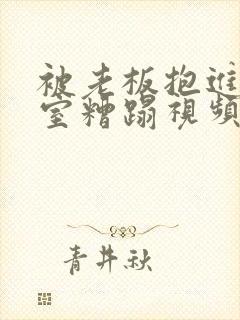 被老板抱進
室糟蹋視頻
青井秋